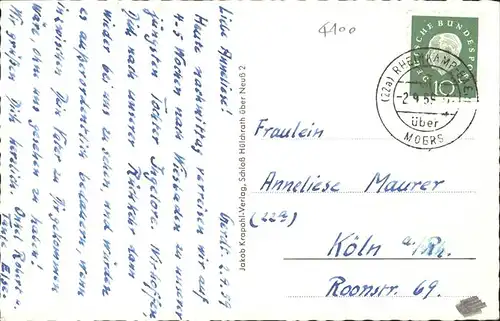 4100
DEUTSCHE BUNDESPOST
10
(22a) RHEINKAMP
-2.9.59
über
MOERS
2.9.59
Liebe Anneliese!
Heute nachmittag verreisen wir auf
4-5 Wochen nach Wiesbaden zu unserer
jüngsten Tochter Ingelore. Wir hoffen,
Dich nach unserer Rückkehr dann
wieder bei uns zu sehen, und würden
es außerordentlich bedauern, wenn
inzwischen Dein Vater zu Dir gekommen
wäre, ohne uns gesehen zu haben!
Wir grüßen Dich herzlich. Onkel Robert u.
Tante Else.
Jakob Krapohl-Verlag, Schloß Hülchrath über Neuß 2
Fräulein
Anneliese Maurer
(22a)
Köln a/Rh.
Roonstr. 69.